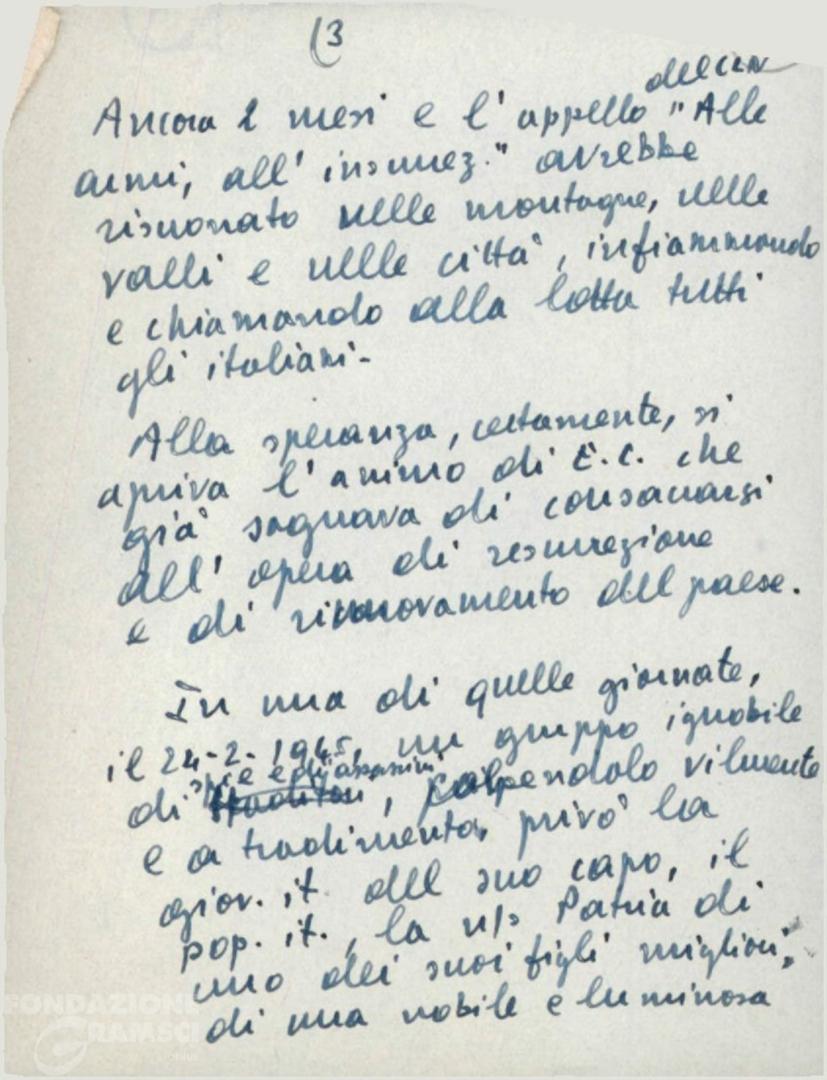 (3
Ancora 2 mesi e l'appello del CLN "Alle
armi, all'insurrez." avrebbe
risuonato nelle montagne, nelle
valli e nelle città, infiammando
e chiamando alla lotta tutti
gli italiani.
Alla speranza, certamente, si
apriva l'animo di E.C. che
già sognava di consacrarsi
all'opera di resurrezione
e di rinnovamento del paese.
In una di quelle giornate,
il 24-2-1945, un gruppo ignobile
di spie e di assassini, colpendolo vilmente
e a tradimento, privò la
giov. it. del suo capo, il
pop. it., la n/s Patria di
uno dei suoi figli migliori,
di una nobile e luminosa
FONDAZIONE
GRAMSCI